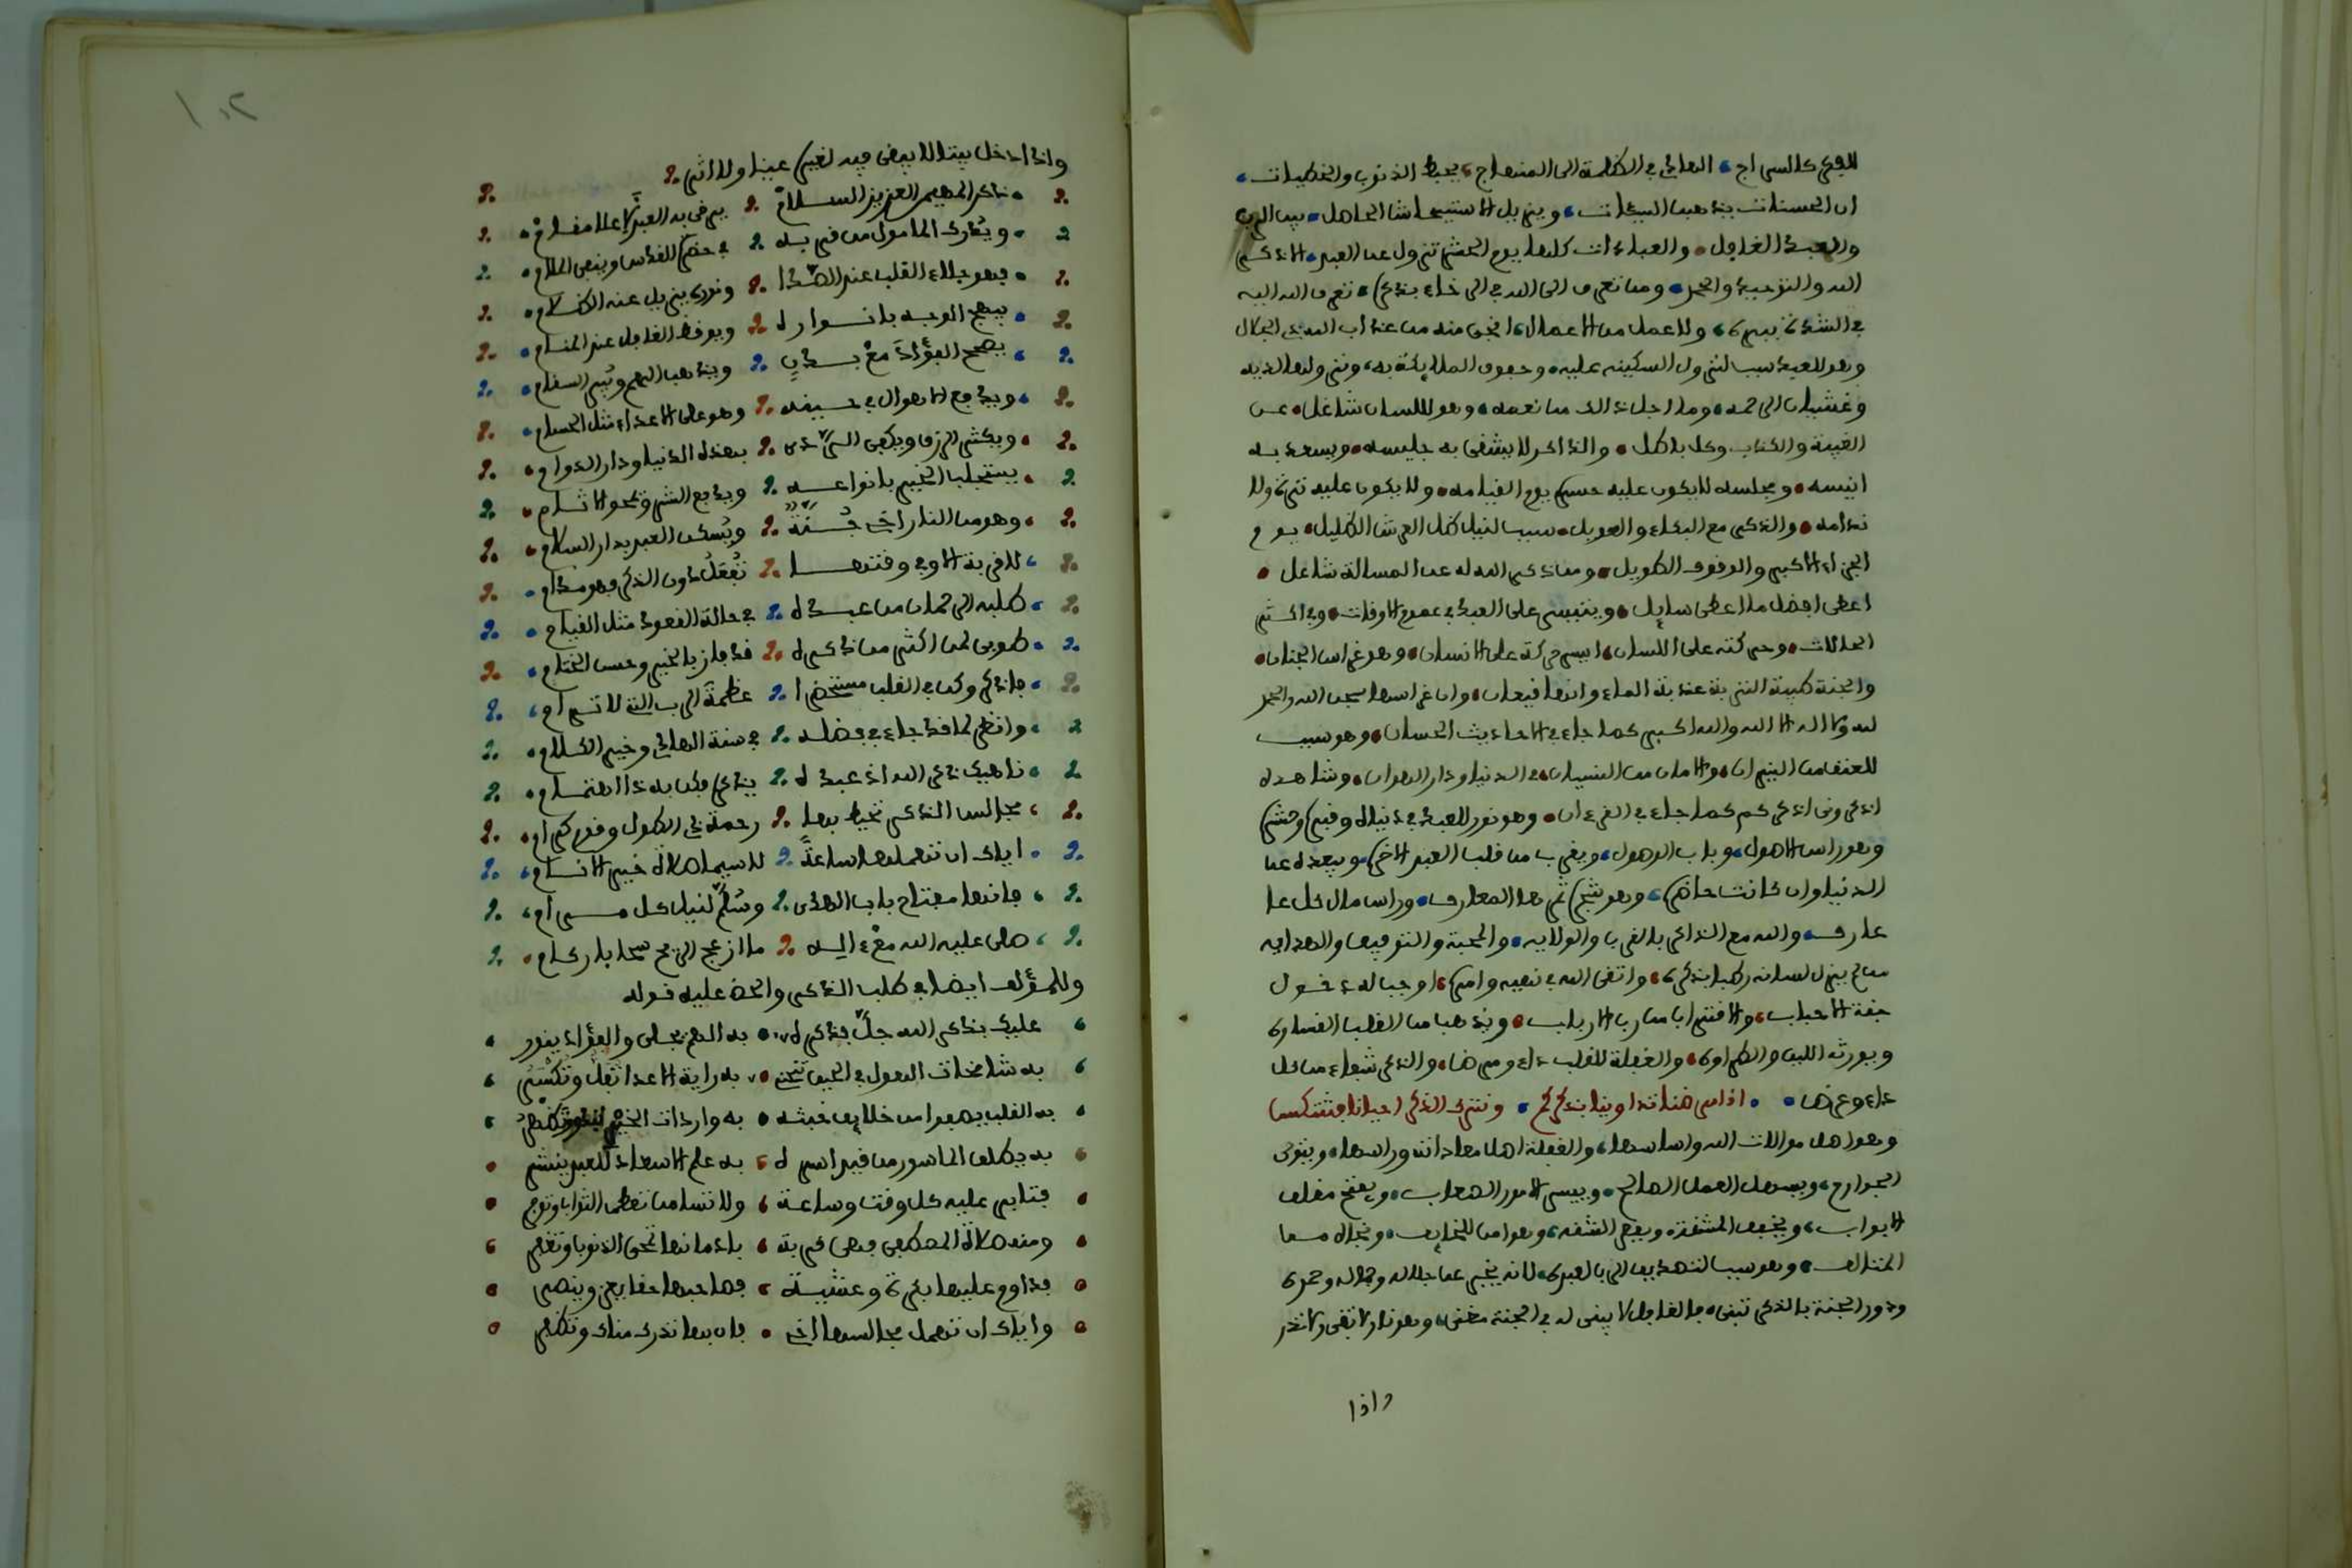 كالسراج، الهادي في الظلمة الى المنهاج، يحط الذنوب والخطيات،
ان الحسنات يذهبن السيئات، ويزيل الاستيحاش الحاصل، بين الرب
والعبد الغافل، والعبادات كلها يوم الحشر تزول عن العبد، الا ذكر
الله والتوحيد والحمد، ومن تعرف الى الله في الرخاء بذكره، تعرف الله اليه
في الشدة ببره، ولا عمل من الاعمال، انجى منه من عذاب الله ذي الجلال
وهو للعبد سبب لنزول السكينه عليه، وحفوف الملايكة به، ونزولها لديه
وغشيان الرحمه، وما اجل ذالك من نعمه، وهو للسان شاغل، عن
الغيبة والكذب وكل باطل، والذاكر لا يشقى به جليسه، ويسعد به
انيسه، ومجلسه لا يكون عليه حسرة يوم القيامه، ولا يكون عليه ترة ولا
ندامه، والذكر مع البكاء والعويل، سبب لنيل ظل العرش الظليل، يوم
الجزاء الاكبر والوقوف الطويل، ومن ذكر الله له عن المسالة شاغل،
اعطى افضل ما اعطى سايل، ويتيسر على العبد في عموم الاوقات، وفي اكثر
الحالات، وحركته على اللسان، ايسر حركة على الانسان، وهو غراس الجنان،
والجنة طيبة التربة عذبة الماء وانها قيعان، وان غراسها سبحن الله والحمد
لله ولا اله الا الله والله اكبر كما جاء في الاحاديث الحسان، وهو سبب
للعتق من النيران، والامان من النسيان، في الدنيا ودار الهوان، وشاهده
اذكروني اذكركم كما جاء في القرءان، وهو نور للعبد في دنياه وقبره وحشره
وهو راس الاصول، وباب الوصول، ويقرب من قلب العبد الاخره، ويبعده عن
الدنيا وان كانت حاضره، وهو شجرة ثمرها المعارف، وراس مال كل
عارف، والله مع الذاكر بالقرب والولايه، والمحبة والتوفيق والهدايه
من لم يزل لسانه رطبا بذكره، واتقى الله في نهيه وامره، اوجب له دخول
جنة الاحباب، والاقتراب من رب الارباب، ويذهب من القلب القساوه
ويورثه اللين والطراوه، والغفلة للقلب داء ومرضا، والذكر شفاء من كل
داء وعرضا، اذا مرضنا تداوينا بذكركم، ونترك الذكر احيانا فننتكس
وهو اصل موالات الله واساسها، والغفلة اصل معاداته وراسها، ويقوى
الجوارح، ويسهل العمل الصالح، وييسر الامور الصعاب، ويفتح مغلق
الابواب، ويخفف المشقه، ويقصر الشقه، وهو امن للخايف، ونجاة مـن
المتالف، وهو سبب لتصديق الرب العبده، لانه يخبر عن جلاله وجماله وحمده
ودور الجنة بالذكر تبنى، فالغافل لا يبنى له في الجنة مغنى، وهو نار لا تبقى ولا تذر
واذا
واذا دخل بيتا لا يبقى فيه لغيره عينا ولا اثر
ذاكر المهيمن العزيز السلام يرقى به العبد لاعلا مقام
ويدرك المامول من قربه في حضرة القدس وينفى الملام
فهو جلاء القلب عند الصدا ونوره يزيل عنه الظلام
يبهج الوجه بانواره ويوقظ الغافل عند المنام
يصحح الفؤاد مع بدن ويذهب الهم ويبرى السقام
ويدفع الاهوال في حينه وهو على الاعداء مثل الحسام
ويكثر الرزق ويكفى الردى بهذه الدنيا ودار الدوام
يستجلب الخير بانواعه ويدفع الشر ومحو الاثام
وهو من النار اخى جنة ويسكن العبد بدار السلام
للقربة الاوفى وقتها تفعل دون الذكر فهو مدام
طلبه الرحمان من عبده في حالة القعود مثل القيام
طوبى لمن اكثر من ذكره قد فاز بالخير وحسن الختام
فاذكر وكن في القلب مستحضرا عظمة الرب التى لا ترام
وانظر لما قد جاء في فضله في سنة الهادي وخير الكلام
ناهيك ذكر الله اذ عبده يذكره فكن به ذا اهتمام
مجالس الذكر تحيط بها رحمة ذي الطول وقوم كرام
اياك ان تهملها ساعة لاسيما صلاة خير الانام
فانها مفتاح باب الهدى وسلم لنيل كل مرام
صلى عليه الله مع ءاله ما ازعج الريح سحابا ركام
وللمؤلف ايضا في طلب الذكر والحض عليه قوله
عليك بذكر الله جل فذكره به الهم يجلى والفؤاد ينور
به شامخات الهول في الحين تنجلى به راية الاعدا تفل وتكسر
به القلب يصفو من خلايق خبثه به واردات الخير
به يطلق الماسور من قيد اسره به علم الاسعاد للعبد ينشر
فثابر عليه كل وقت وساعة ولا تسامن تعطى الثواب وتوجر
ومنه صلاة المصطفى فهى قربة بادمانها تمحى الذنوب وتغفر
فداوم عليها بكرة وعشية فصاحبها حقا يعز وينصر
واياك ان تهمل مجالسها اخى فان بها تدرك مناك وتظفر